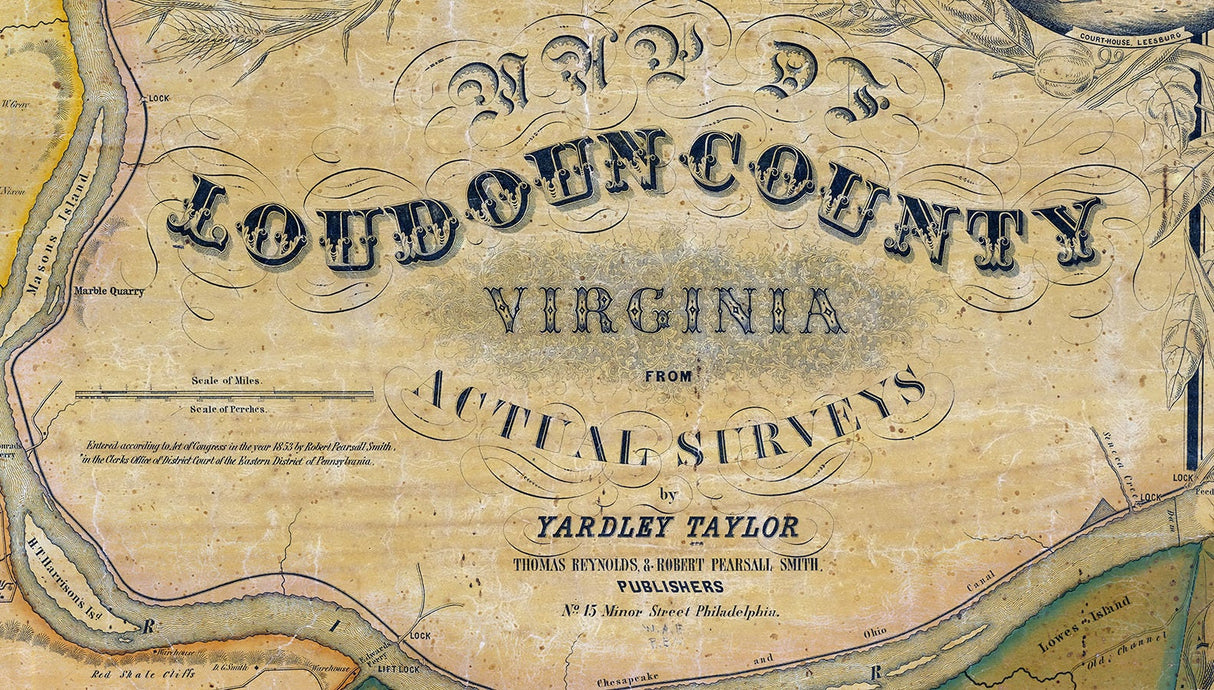 COURT-HOUSE, LEESBURG
MAP OF
LOUDOUN COUNTY
VIRGINIA
FROM
ACTUAL SURVEYS
by
YARDLEY TAYLOR
THOMAS REYNOLDS, & ROBERT PEARSALL SMITH.
PUBLISHERS
No. 15 Minor Street Philadelphia.
W. Gray
LOCK
Nixon
Masons Island
Marble Quarry
Scale of Miles.
Scale of Perches.
Entered according to Act of Congress in the year 1853 by Robert Pearsall Smith,
in the Clerks Office of District Court of the Eastern District of Pennsylvania.
H.T. Harrisons Isd
R I
Warehouse
Red Shale Cliffs
D.G. Smith
Warehouse
Edwards Ferry
LOCK
LIFT LOCK
Chesapeake and Ohio Canal
R
Seneca Creek
LOCK
LOCK
Feed
Dam
Lowes Island
Old Channel